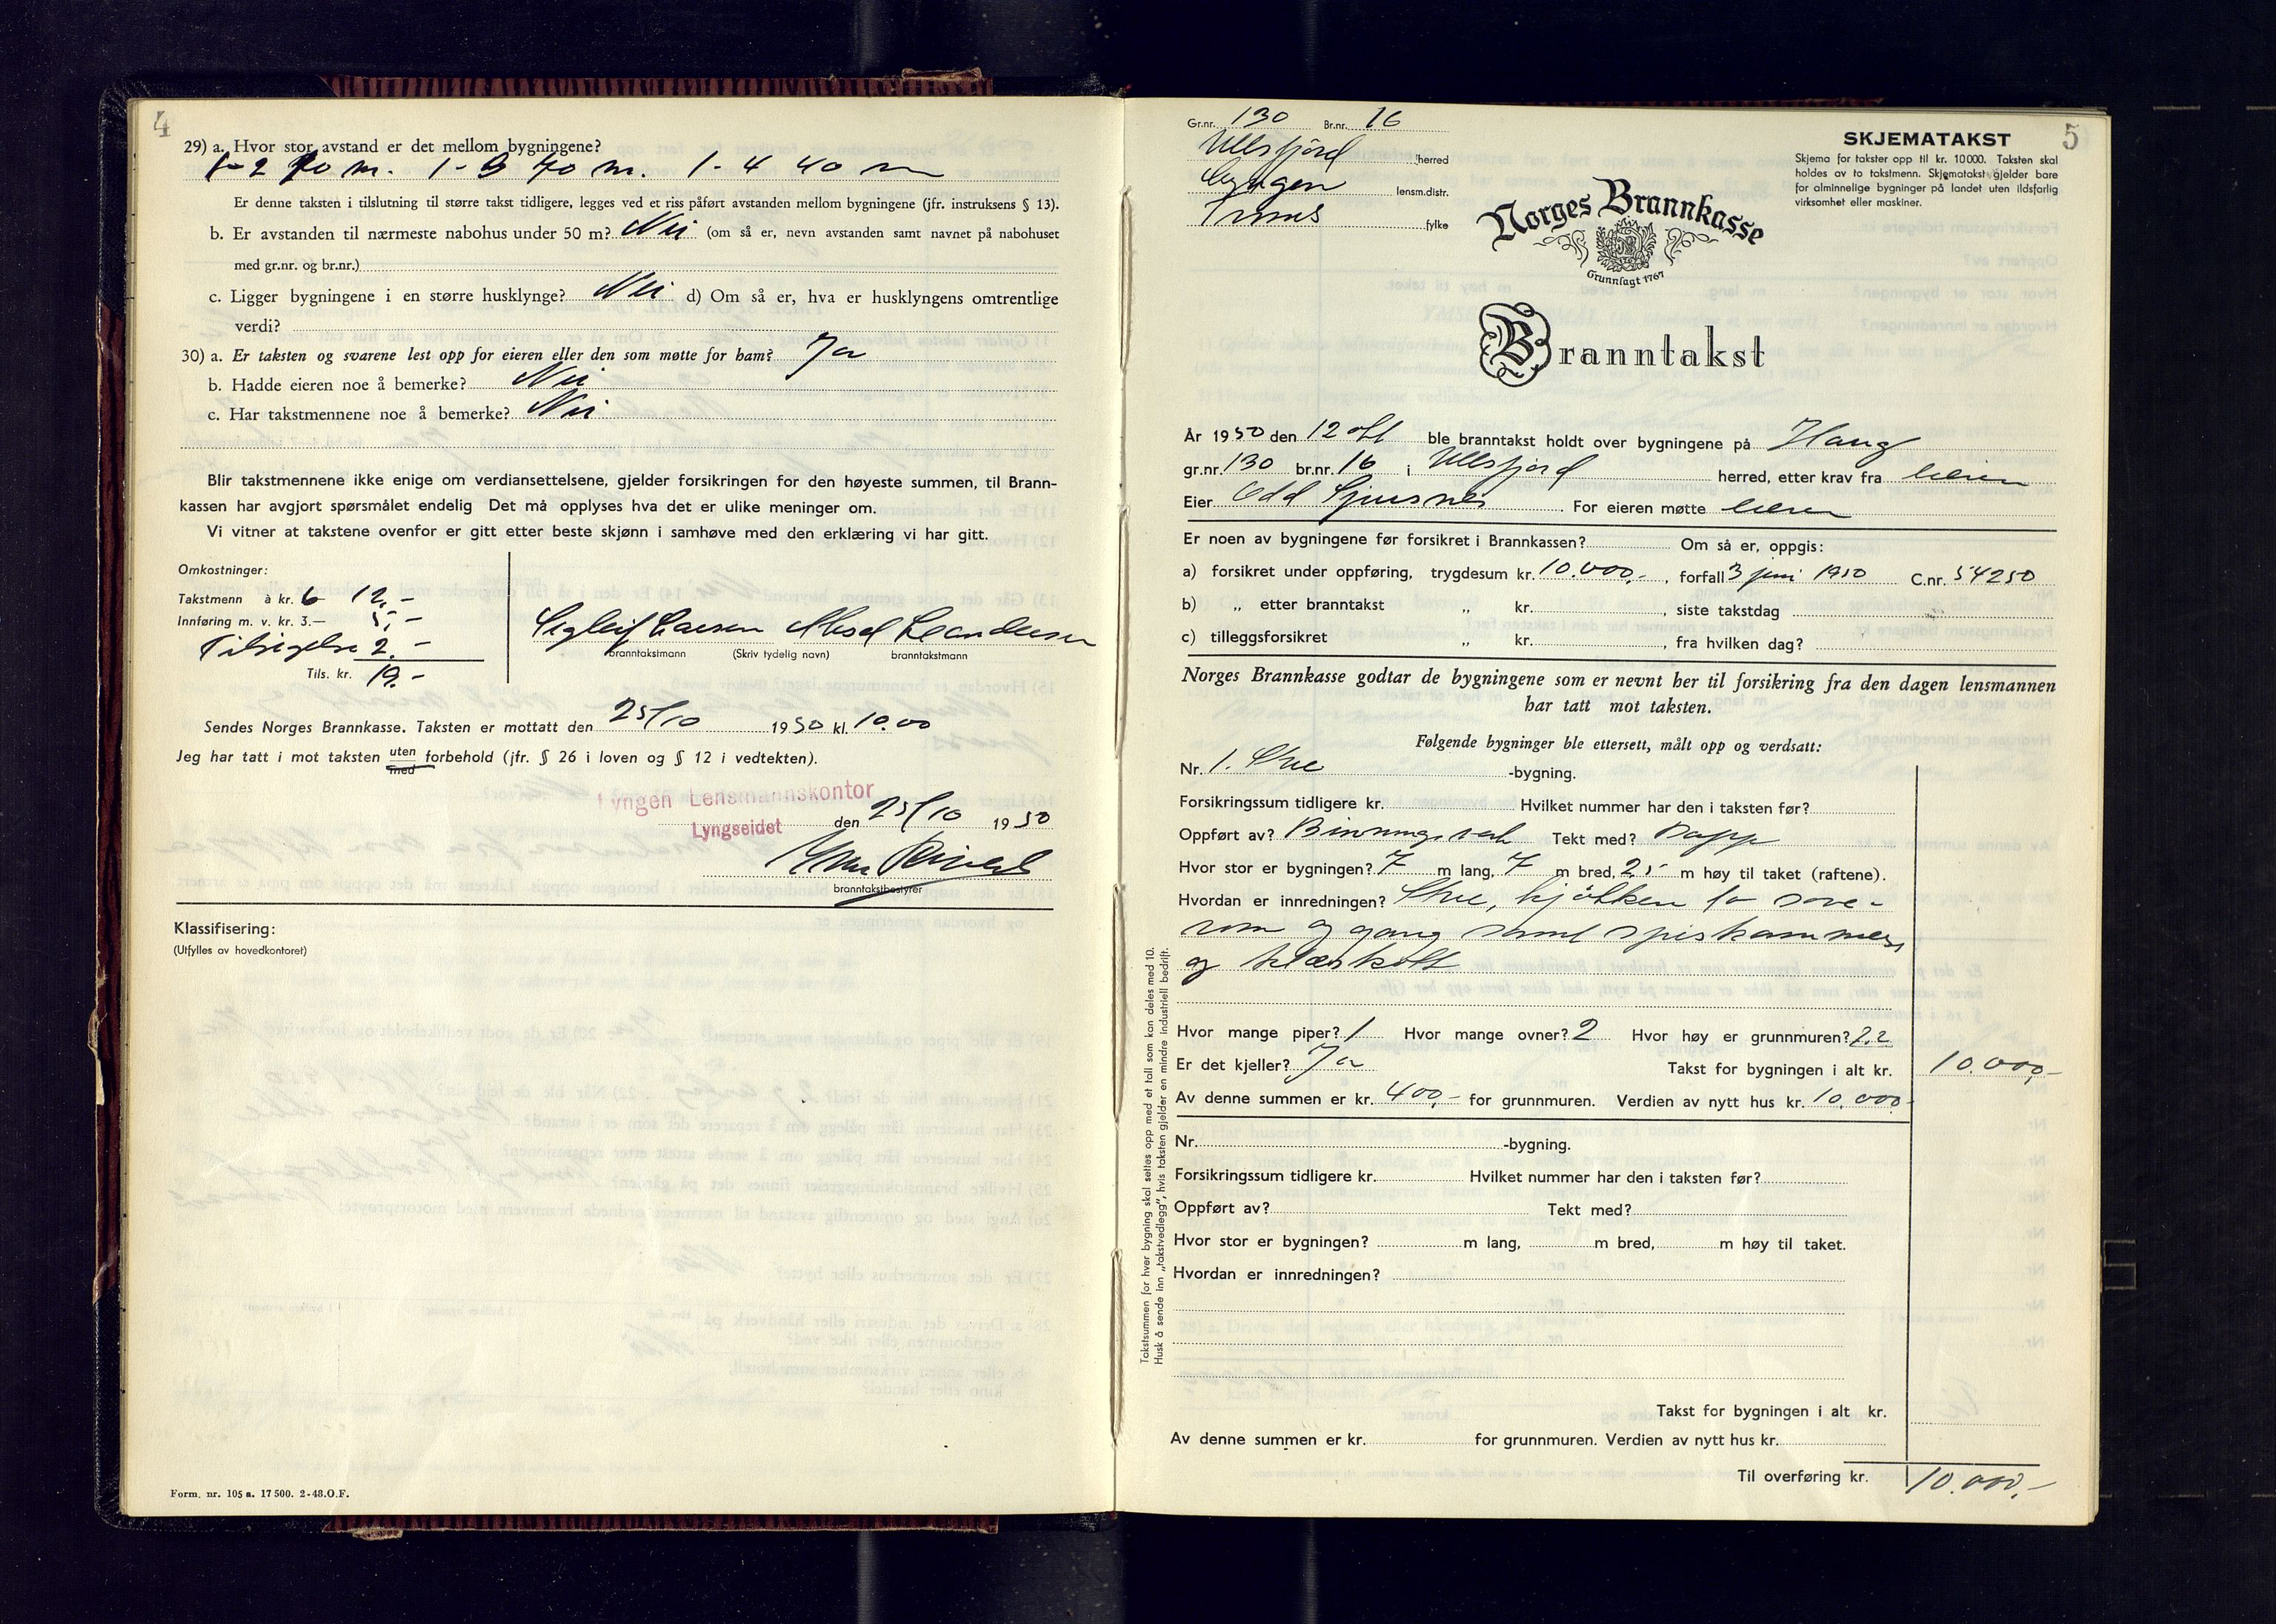 4
29) a. Hvor stor avstand er det mellom bygningene?
1-2 70 m. 1-3 70 m. 1-4 40 m
Er denne taksten i tilslutning til større takst tidligere, legges ved et riss påført avstanden mellom bygningene (jfr. instruksens § 13).
b. Er avstanden til nærmeste nabohus under 50 m? Nei (om så er, nevn avstanden samt navnet på nabohuset
med gr.nr. og br.nr.)
c. Ligger bygningene i en større husklynge? Nei d) Om så er, hva er husklyngens omtrentlige
verdi?
30) a. Er taksten og svarene lest opp for eieren eller den som møtte for ham? Ja
b. Hadde eieren noe å bemerke? Nei
c. Har takstmennene noe å bemerke? Nei
Blir takstmennene ikke enige om verdiansettelsene, gjelder forsikringen for den høyeste summen, til Brann-
kassen har avgjort spørsmålet endelig Det må opplyses hva det er ulike meninger om.
Vi vitner at takstene ovenfor er gitt etter beste skjønn i samhøve med den erklæring vi har gitt.
Omkostninger:
Takstmenn à kr. 6 12.-
Innføring m. v. kr. 3.— 5.-
Tilsigelse 2.-
Tils. kr. 19.-
Sigleif Larsen
branntakstmann (Skriv tydelig navn) branntakstmann
Sendes Norges Brannkasse. Taksten er mottatt den 25/10 1950 kl. 10.00
Jeg har tatt i mot taksten uten forbehold (jfr. § 26 i loven og § 12 i vedtekten).
med
Lyngen Lensmannskontor
Lyngseidet den 25/10 1950
branntakstbestyrer
Klassifisering:
(Utfylles av hovedkontoret)
Form. nr. 105 a. 17 500. 2-48. O.F.
5
Gr.nr. 130 Br.nr. 16
Ullsfjord herred
Lyngen lensm.distr.
Troms fylke
SKJEMATAKST
Skjema for takster opp til kr. 10 000. Taksten skal
holdes av to takstmenn. Skjematakst gjelder bare
for alminnelige bygninger på landet uten ildsfarlig
virksomhet eller maskiner.
Norges Brannkasse
Grunnlagt 1767
Branntakst
År 1950 den 12 okt ble branntakst holdt over bygningene på Haug
gr.nr. 130 br.nr. 16 i Ullsfjord herred, etter krav fra eieren
Eier Odd Sjursnes For eieren møtte eieren
Er noen av bygningene før forsikret i Brannkassen? Om så er, oppgis:
a) forsikret under oppføring, trygdesum kr. 10.000,-, forfall 3 juni 1950 C.nr. 54250
b) „ etter branntakst „ kr. , siste takstdag
c) tilleggsforsikret „ kr. , fra hvilken dag?
Norges Brannkasse godtar de bygningene som er nevnt her til forsikring fra den dagen lensmannen
har tatt mot taksten.
Følgende bygninger ble ettersett, målt opp og verdsatt:
Nr. 1. Stue -bygning.
Forsikringssum tidligere kr. Hvilket nummer har den i taksten før?
Oppført av? Binningsverk Tekt med? Papp
Hvor stor er bygningen? 7 m lang, 7 m bred, 2,5 m høy til taket (raftene).
Hvordan er innredningen? Stue, kjøkken to sove-
rom og gang samt spiskammers
og klæskott
Hvor mange piper? 1 Hvor mange ovner? 2 Hvor høy er grunnmuren? 2.2
Er det kjeller? Ja Takst for bygningen i alt kr. 10.000,-
Av denne summen er kr. 400,- for grunnmuren. Verdien av nytt hus kr. 10.000,-
Nr. -bygning.
Forsikringssum tidligere kr. Hvilket nummer har den i taksten før?
Oppført av? Tekt med?
Hvor stor er bygningen? m lang, m bred, m høy til taket.
Hvordan er innredningen?
Takst for bygningen i alt kr.
Av denne summen er kr. for grunnmuren. Verdien av nytt hus kr.
Til overføring kr. 10.000,-
Takstsummen for hver bygning skal settes opp med et tall som kan deles med 10.
Husk å sende inn „takstvedlegg", hvis taksten gjelder en mindre industriell bedrift.